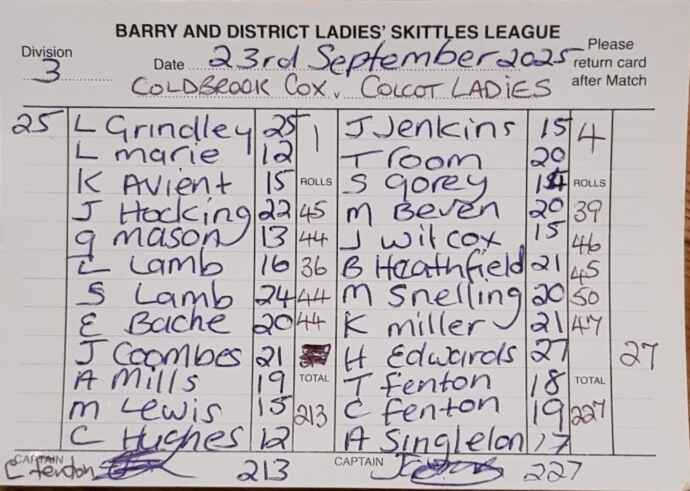 BARRY AND DISTRICT LADIES' SKITTLES LEAGUE
Division 3 Date 23rd September 2025 Please return card after Match
COLDBROOK COX v. COLCOT LADIES
25 L Grindley 25 1 J Jenkins 15 4
L marie 12 T room 20
K Avient 15 ROLLS S Gorey 14 ROLLS
J Hocking 22 45 M Beven 20 39
G mason 13 44 J Wilcox 15 46
L Lamb 16 36 B Heathfield 21 45
S Lamb 24 44 M Snelling 20 50
E Bache 20 44 K miller 21 47
J Coombes 21 H Edwards 27 27
A Mills 19 TOTAL T fenton 18 TOTAL
M Lewis 15 213 C fenton 19 227
C Hughes 12 A Singleton 17
CAPTAIN C fenton 213 CAPTAIN 227